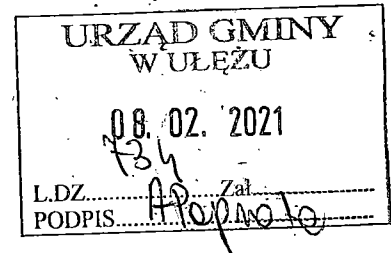 URZĄD GMINY
W UŁĘŻU
08. 02. 2021
734
L.DZ.................Zał.................
PODPIS.................